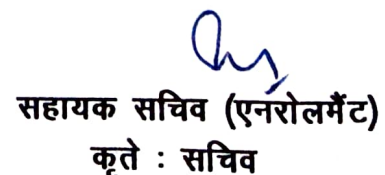 सहायक सचिव (एनरोलमैंट)
कृते : सचिव